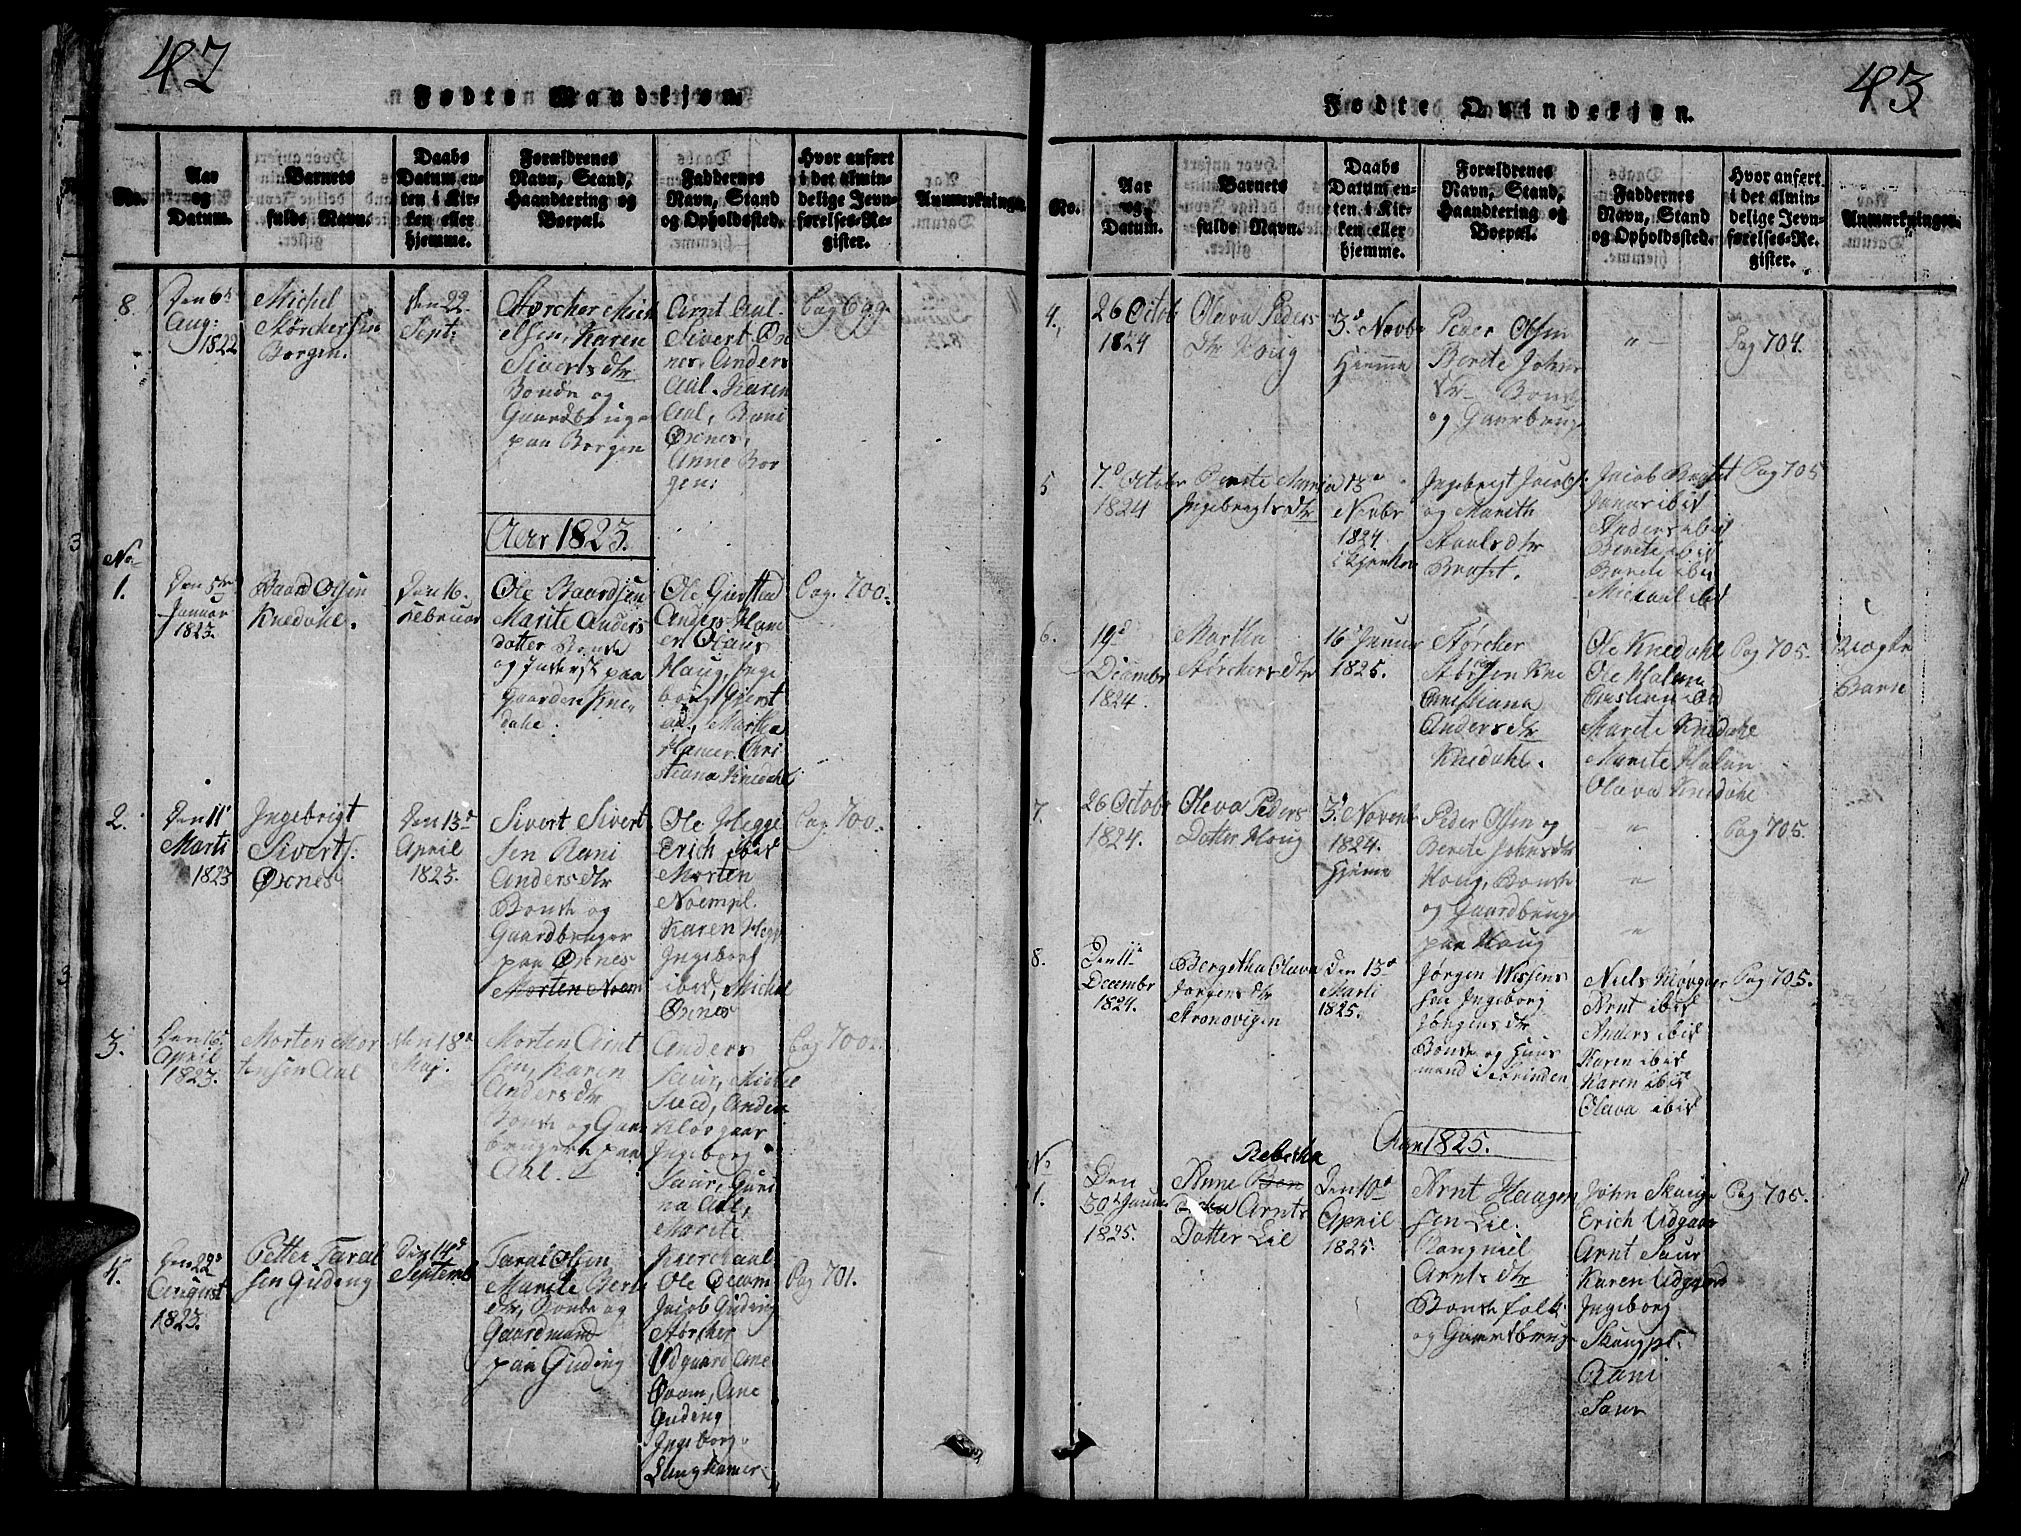 42
Fødte Mandkjøn.
No.
Aar
og
Datum.
Barnets
fulde Navn.
Daabs
Datum en-
ten i Kir-
ken eller
hjemme.
Forældrenes
Navn, Stand,
Haandtering og
Boepæl.
Faddernes
Navn, Stand
og Opholdssted.
Hvor anført
i det almin-
delige Jevn-
førelses-Re-
gister.
Anmærkninger
8
Den 6te
Aug:
1822
Michel
Størchersen
Borgen.
den 22
Sept:
Størcher Mich
elsen, Karen
Siverts dtr
Bonde og
Gaardbruger
paa Borgen
Arnt Aal.
Sivert Øxe
nes, Anders
Aal, Karen
Aal, Rani
Øxenes,
Anne Bor
gen.
Pag 699
Aar 1823.
No
1.
Den 5te
Januar
1823.
Baard Olsen
Knedahl.
Den 16.
Februar
Ole Baardsen
Marite Anders
dotter Bonde
og paa
Gaarden Kne
dahl.
Ole Gierstad
Anders Ham
er, Olaus
Haug, Inge
borg Gierst
ad, Martha
Hamer, Chri
stiana Knedahl
Pag. 700.
2.
Den 11te
Marti
1823
Ingebrigt
Siverts.
Øxenes
Den 13d
April
1823.
Sivert Sivert
sen Rani
Anders dtr
Bonde og
Gaardbruger
paa Øxenes
Morten Noem
Ole Hegge
Erich ibid
Morten
Noempl.
Karen Hegg
Ingeborg
ibid, Michel
Øxenes
Pag 700.
3.
Den 16.
April
1823.
Morten Mor
tensen Aal
den 18de
Maj.
Morten Arnt
sen, Karen
Anders dtr
Bonde og Gaar
bruger paa
Ahl.
Anders
Saur, Michel
Sved, Anders
Kløvgaar
Ingeborg
Saur, Guri
na Aal,
Marite
Pag 700.
4.
Den 22d
August
1823.
Petter Taral
sen Guding
Den 14d
Septemb
Taral Olsen
Marite Berte
dtr, Bonde og
Gaardmand
paa Guding
Ole
Jacob Guding
Størcher
Udgaard Ane
Ane
Guding
Ingeborg
Slinghamer
Pag 701.
43
Fødte Qvindekjøn.
No.
Aar
og
Datum.
Barnets
fulde Navn.
Daabs
Datum en-
ten i Kir-
ken eller
hjemme.
Forældrenes
Navn, Stand,
Haandtering og
Boepæl.
Faddernes
Navn, Stand
og Opholdssted.
Hvor anført
i det almin-
delige Jevn-
førelses-Re-
gister.
Anmærkninger.
4.
26 Octob
1824
Olava Peders
Dtr Houg
3d Novbr
Hiemme
Peder Olsen
Berete Johns
dtr Bonde
og Gaarbrug
"
Pag 704.
5
7d October
1824
Berete Maria
Ingebrigtsdtr
13d
Novbr
1824.
i Kjerken
Ingebrigt Jacobs.
og Marith
dtr
Braset.
Jacob Braset
ibid
Anders ibid
Berete ibid
Berete ibid
Michael ibid
Pag 705
6.
19d
Decembr
1824.
Martha
Størchersdtr
16d Januar
1825.
Størcher
Christiana
Anders dtr
Knedahl.
Ole Knedahl
Ole Halan
Cristian ibid
Marete Knedahl
Marete Halan
Olava Knedahl
Pag 705.
Uægte
Barn
7.
26 Octobr
1824.
Olava Peders
Datter Houg
3d Novemb
1824.
Hjeme
Peder Olsen og
Berete Johnsdtr
Houg, Bonde
og Gaardbrug
paa Houg
"
"
"
"
Pag 705.
8.
Den 11te
Decembr
1824.
Bergetha Olava
Jørgens dtr
Stronovigen
den 13d
Marti
1825.
Jørgen Nissens
søn Ingeborg
Jørgens dtr
Bonde og Huus
mand i Strinden
Niels Kløvgaar
Arnt ibid
Anders ibid
Karen ibid
Karen ibid
Olava ibid
Pag 705.
Aar 1825.
No
1.
Den
30te Januar
1825.
Rebecka
Anne
Arnts
Datter Lie
Den 10d
April
1825.
Arnt Haagen
sen Lie.
Rangniel
Arnts dtr
Bonde folk
og Gaardbrug
John Skauge
Erich Udgaar
Arnt Saur
Karen Udgaard
Ingeborg
Skaugpl.
Rani
Saur
Pag 705.